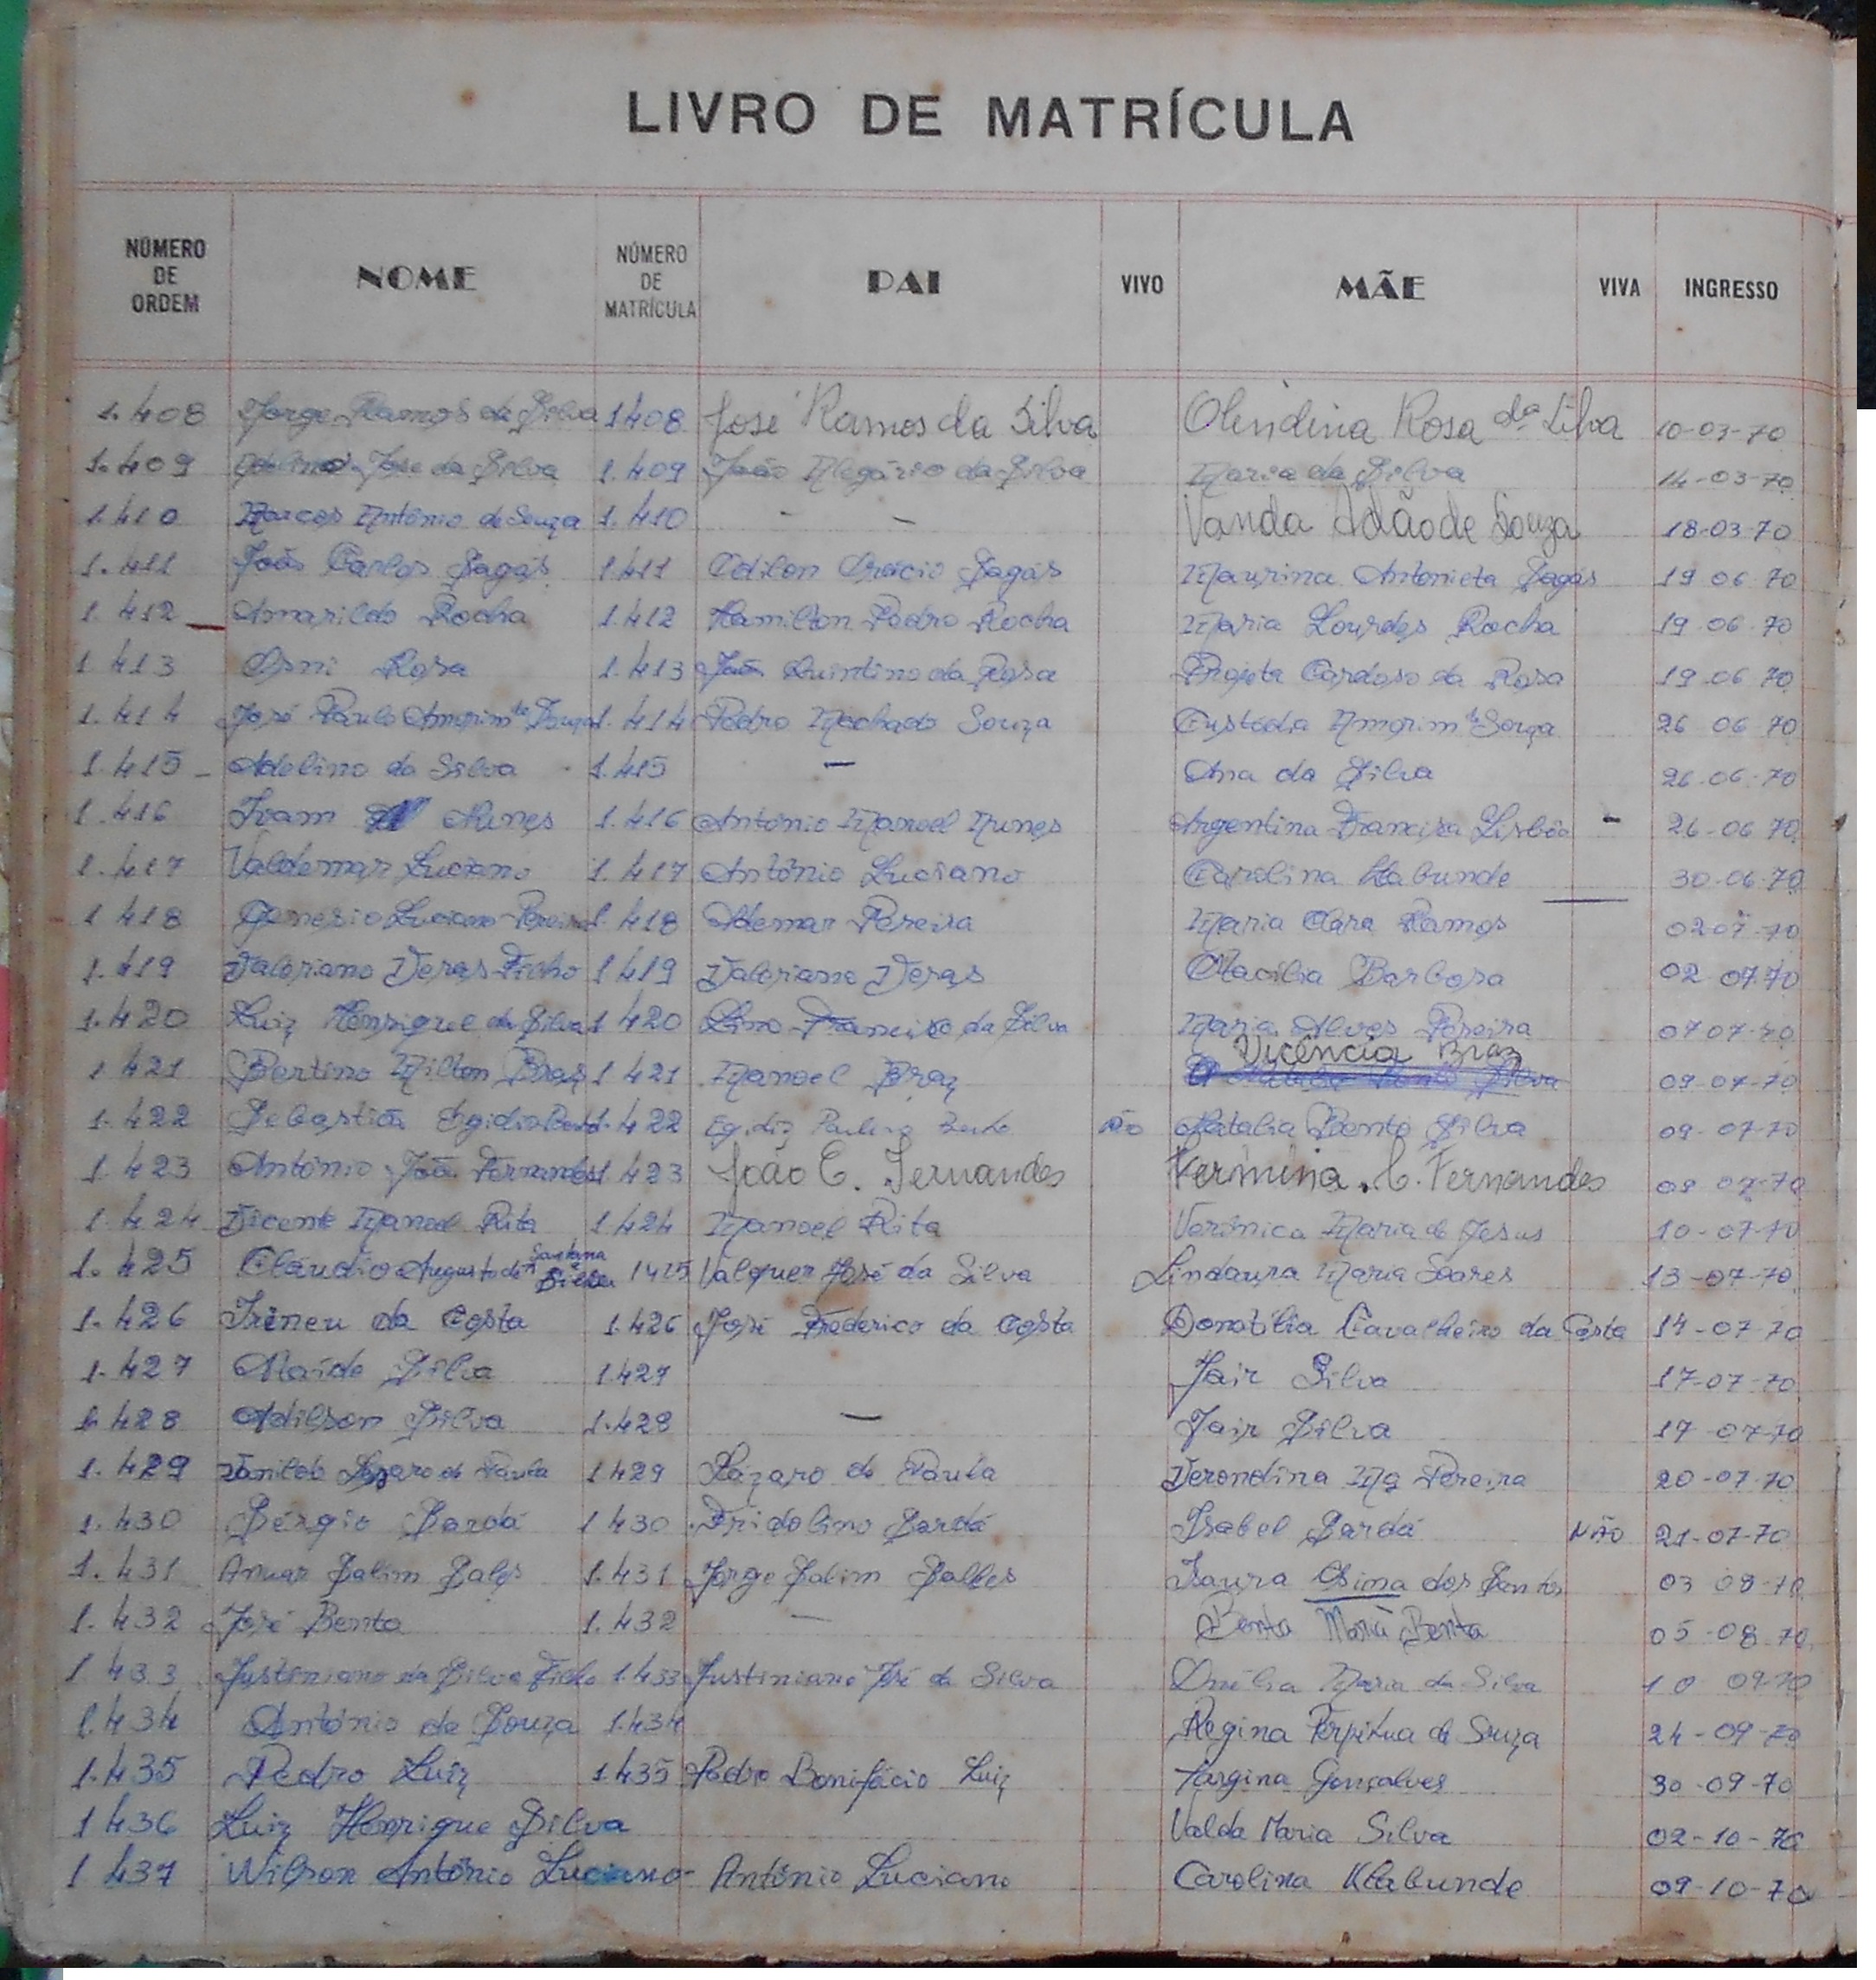 LIVRO DE MATRÍCULA
NÚMERO DE ORDEM NOME NÚMERO DE MATRÍCULA PAI VIVO MÃE VIVA INGRESSO
1.408 Jorge Ramos da Silva 1408 José Ramos da Silva Olindina Rosa da Silva 10-03-70
1.409 José da Silva 1.409 João Olegário da Silva Maria da Silva 14-03-70
1.410 Marcos Antônio de Souza 1.410 - - Vanda Adão de Souza 18-03-70
1.411 João Carlos Sagás 1411 Odilon Sagás Maurina Antonieta Sagás 19 06 70
1.412 Amarildo Rocha 1.412 Hamilton Pedro Rocha Maria Lourdes Rocha 19-06-70
1.413 Osni Rosa 1.413 João Quintino da Rosa Cardoso da Rosa 19-06 70
1.414 José Paulo Amorim de Souza 1.414 Pedro Machado Souza Custódia Amorim de Souza 26 06 70
1.415 - Adelino da Silva 1.415 - Ana da Silva 26-06-70
1.416 Ivam Nunes 1.416 Antônio Manoel Nunes Argentina Francisca Lisbôa - 26-06 70
1.417 Valdemar Luciano 1.417 Antônio Luciano Carolina Klabunde 30-06-70
1 418 Genesio Luciano Pereira 1.418 Ademar Pereira Maria Clara Ramos 02 07-70
1.419 Valoriano Veras Filho 1419 Valoriano Veras Otacilia Barbosa 02 07.70
1.420 Luiz Henrique da Silva 1 420 Lino Francisco da Silva Maria Alves Pereira 07 07-70
1 421 Bertino Milton Braz 1 421 Manoel Braz Vicência Braz 09-07-70
1.422 Sebastião Egidio 1.422 Não Natalia Bento Silva 09-07-70
1.423 Antônio João Fernandes 1423 João C. Fernandes Vermina. C. Fernandes 09 07-70
1.424 Vicente Manoel Rita 1.424 Manoel Rita Verônica Maria de Jesus 10-07-70
1.425 Cláudio Augusto de Santana e Silva 1425 Valquer José da Silva Lindaura Maria Soares 13-07-70
1.426 Irineu da Costa 1.426 José Frederico da Costa Donatília Cavalheiro da Costa 14-07 70
1.427 Alaíde Silva 1.427 Jair Silva 17-07-70
1.428 Adilson Silva 1.428 - Jair Silva 17-07-70
1.429 Vanildo Lázaro de Paula 1429 Lázaro de Paula Verondina Ma Pereira 20-07-70
1.430 Sérgio Sardá 1430 Fridolino Sardá Isabel Sardá NÃO 21-07-70
1.431 Anuar Salim Sales 1.431 Jorge Salim Salles Isaura Osima dos Santos 03 08-70
1.432 José Bento 1.432 - Benta Maria Benta 05-08 70
1 433 Justiniano da Silva Filho 1.433 Justiniano José da Silva Maria da Silva 10 09-70
1.434 Antônio de Souza 1.434 Regina Perpétua de Souza 24-09-70
1.435 Pedro Luiz 1.435 Pedro Bonifácio Luiz Targina Gonçalves 30-09-70
1 436 Luiz Henrique Silva Valda Maria Silva 02-10-70
1 437 Wilson Antônio Luciano - Antônio Luciano Carolina Klabunde 09-10-70